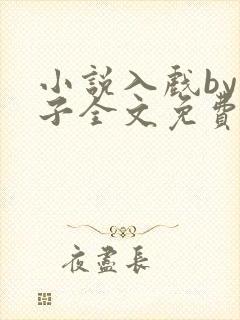 小說入戲by
子全文免費
夜盡長